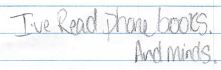 I've Read phone books.
And minds.